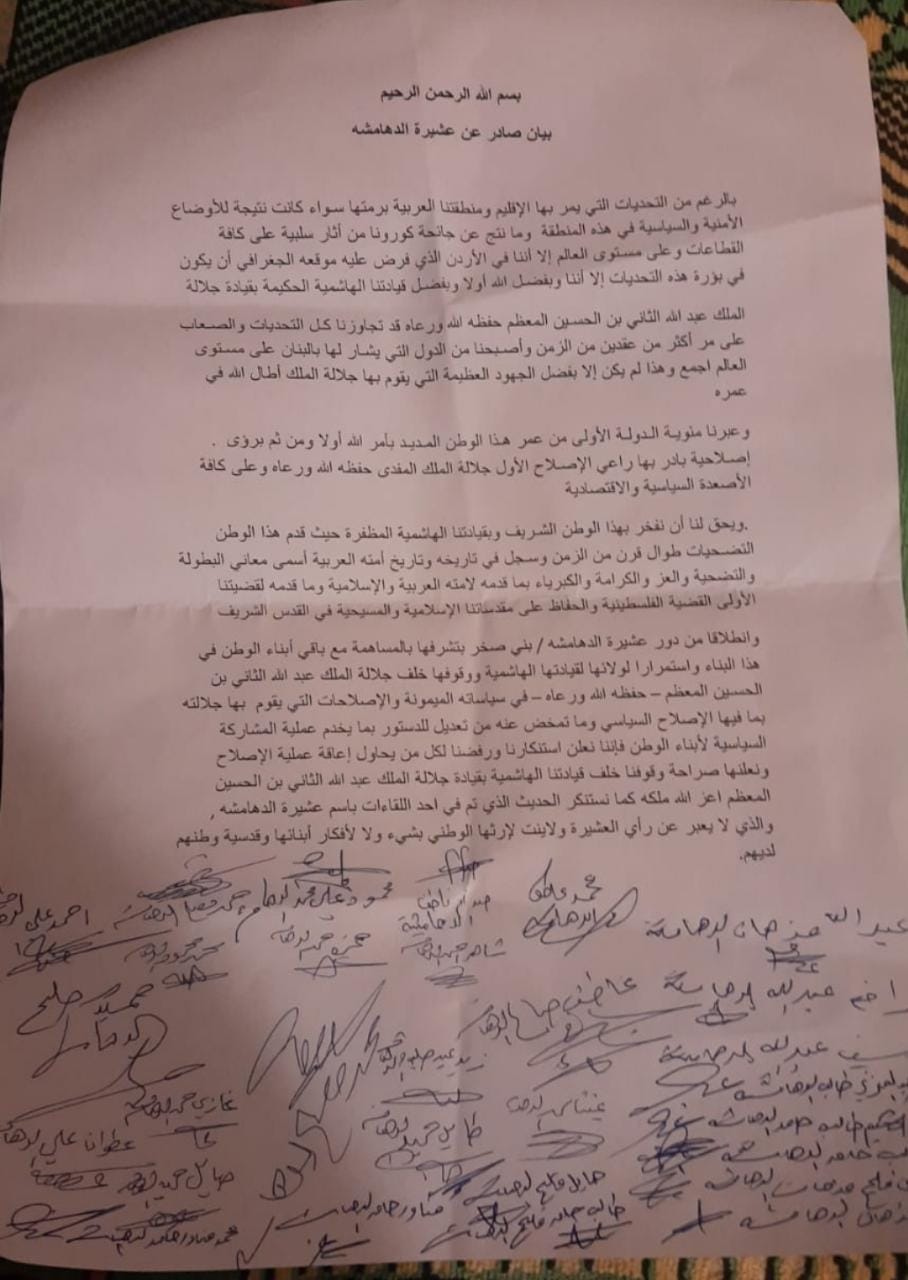 بسم الله الرحمن الرحيم
بيان صادر عن عشيرة الدهامشه
بالرغم من التحديات التي يمر بها الإقليم ومنطقتنا العربية برمتها سواء كانت نتيجة للأوضاع
الأمنية والسياسية في هذه المنطقة وما نتج عن جائحة كورونا من أثار سلبية على كافة
القطاعات وعلى مستوى العالم إلا أننا في الأردن الذي فرض عليه موقعه الجغرافي أن يكون
في بؤرة هذه التحديات إلا أننا وبفضل الله أولا وبفضل قيادتنا الهاشمية الحكيمة بقيادة جلالة
الملك عبد الله الثاني بن الحسين المعظم حفظه الله ورعاه قد تجاوزنا كل التحديات والصعاب
على مر أكثر من عقدين من الزمن وأصبحنا من الدول التي يشار لها بالبنان على مستوى
العالم اجمع وهذا لم يكن إلا بفضل الجهود العظيمة التي يقوم بها جلالة الملك أطال الله في
عمره
وعبرنا مئوية الدولة الأولى من عمر هذا الوطن المديد بأمر الله أولا ومن ثم برؤى .
إصلاحية بادر بها راعي الإصلاح الأول جلالة الملك المفدى حفظه الله ورعاه وعلى كافة
الأصعدة السياسية والاقتصادية
.ويحق لنا أن نفخر بهذا الوطن الشريف وبقيادتنا الهاشمية المظفرة حيث قدم هذا الوطن
التضحيات طوال قرن من الزمن وسجل في تاريخه وتاريخ أمته العربية أسمى معاني البطولة
والتضحية والعز والكرامة والكبرياء بما قدمه لامته العربية والإسلامية وما قدمه لقضيتنا
الأولى القضية الفلسطينية والحفاظ على مقدساتنا الإسلامية والمسيحية في القدس الشريف
وانطلاقا من دور عشيرة الدهامشه / بني صخر بتشرفها بالمساهمة مع باقي أبناء الوطن في
هذا البناء واستمرارا لولائها لقيادتها الهاشمية ووقوفها خلف جلالة الملك عبد الله الثاني بن
الحسين المعظم – حفظه الله ورعاه – في سياساته الميمونة والإصلاحات التي يقوم بها جلالته
بما فيها الإصلاح السياسي وما تمخض عنه من تعديل للدستور بما يخدم عملية المشاركة
السياسية لأبناء الوطن فإننا نعلن استنكارنا ورفضنا لكل من يحاول إعاقة عملية الإصلاح
ونعلنها صراحة وقوفنا خلف قيادتنا الهاشمية بقيادة جلالة الملك عبد الله الثاني بن الحسين
المعظم اعز الله ملكه كما نستنكر الحديث الذي تم في احد اللقاءات باسم عشيرة الدهامشه ,
والذي لا يعبر عن رأي العشيرة ولايبت لإرثها الوطني بشيء ولا لأفكار أبنائها وقدسية وطنهم
لديهم.
محمد عاطف الدهامشة
عبد الله الدهامشة
حمزة
شاهر
محمود علي محمد
احمد علي
عبدالله الدهامشة
عاطف
سيف عبدالله الدهامشة
زيد عيد
غازي
عطوان علي
طايل
هايل فليح